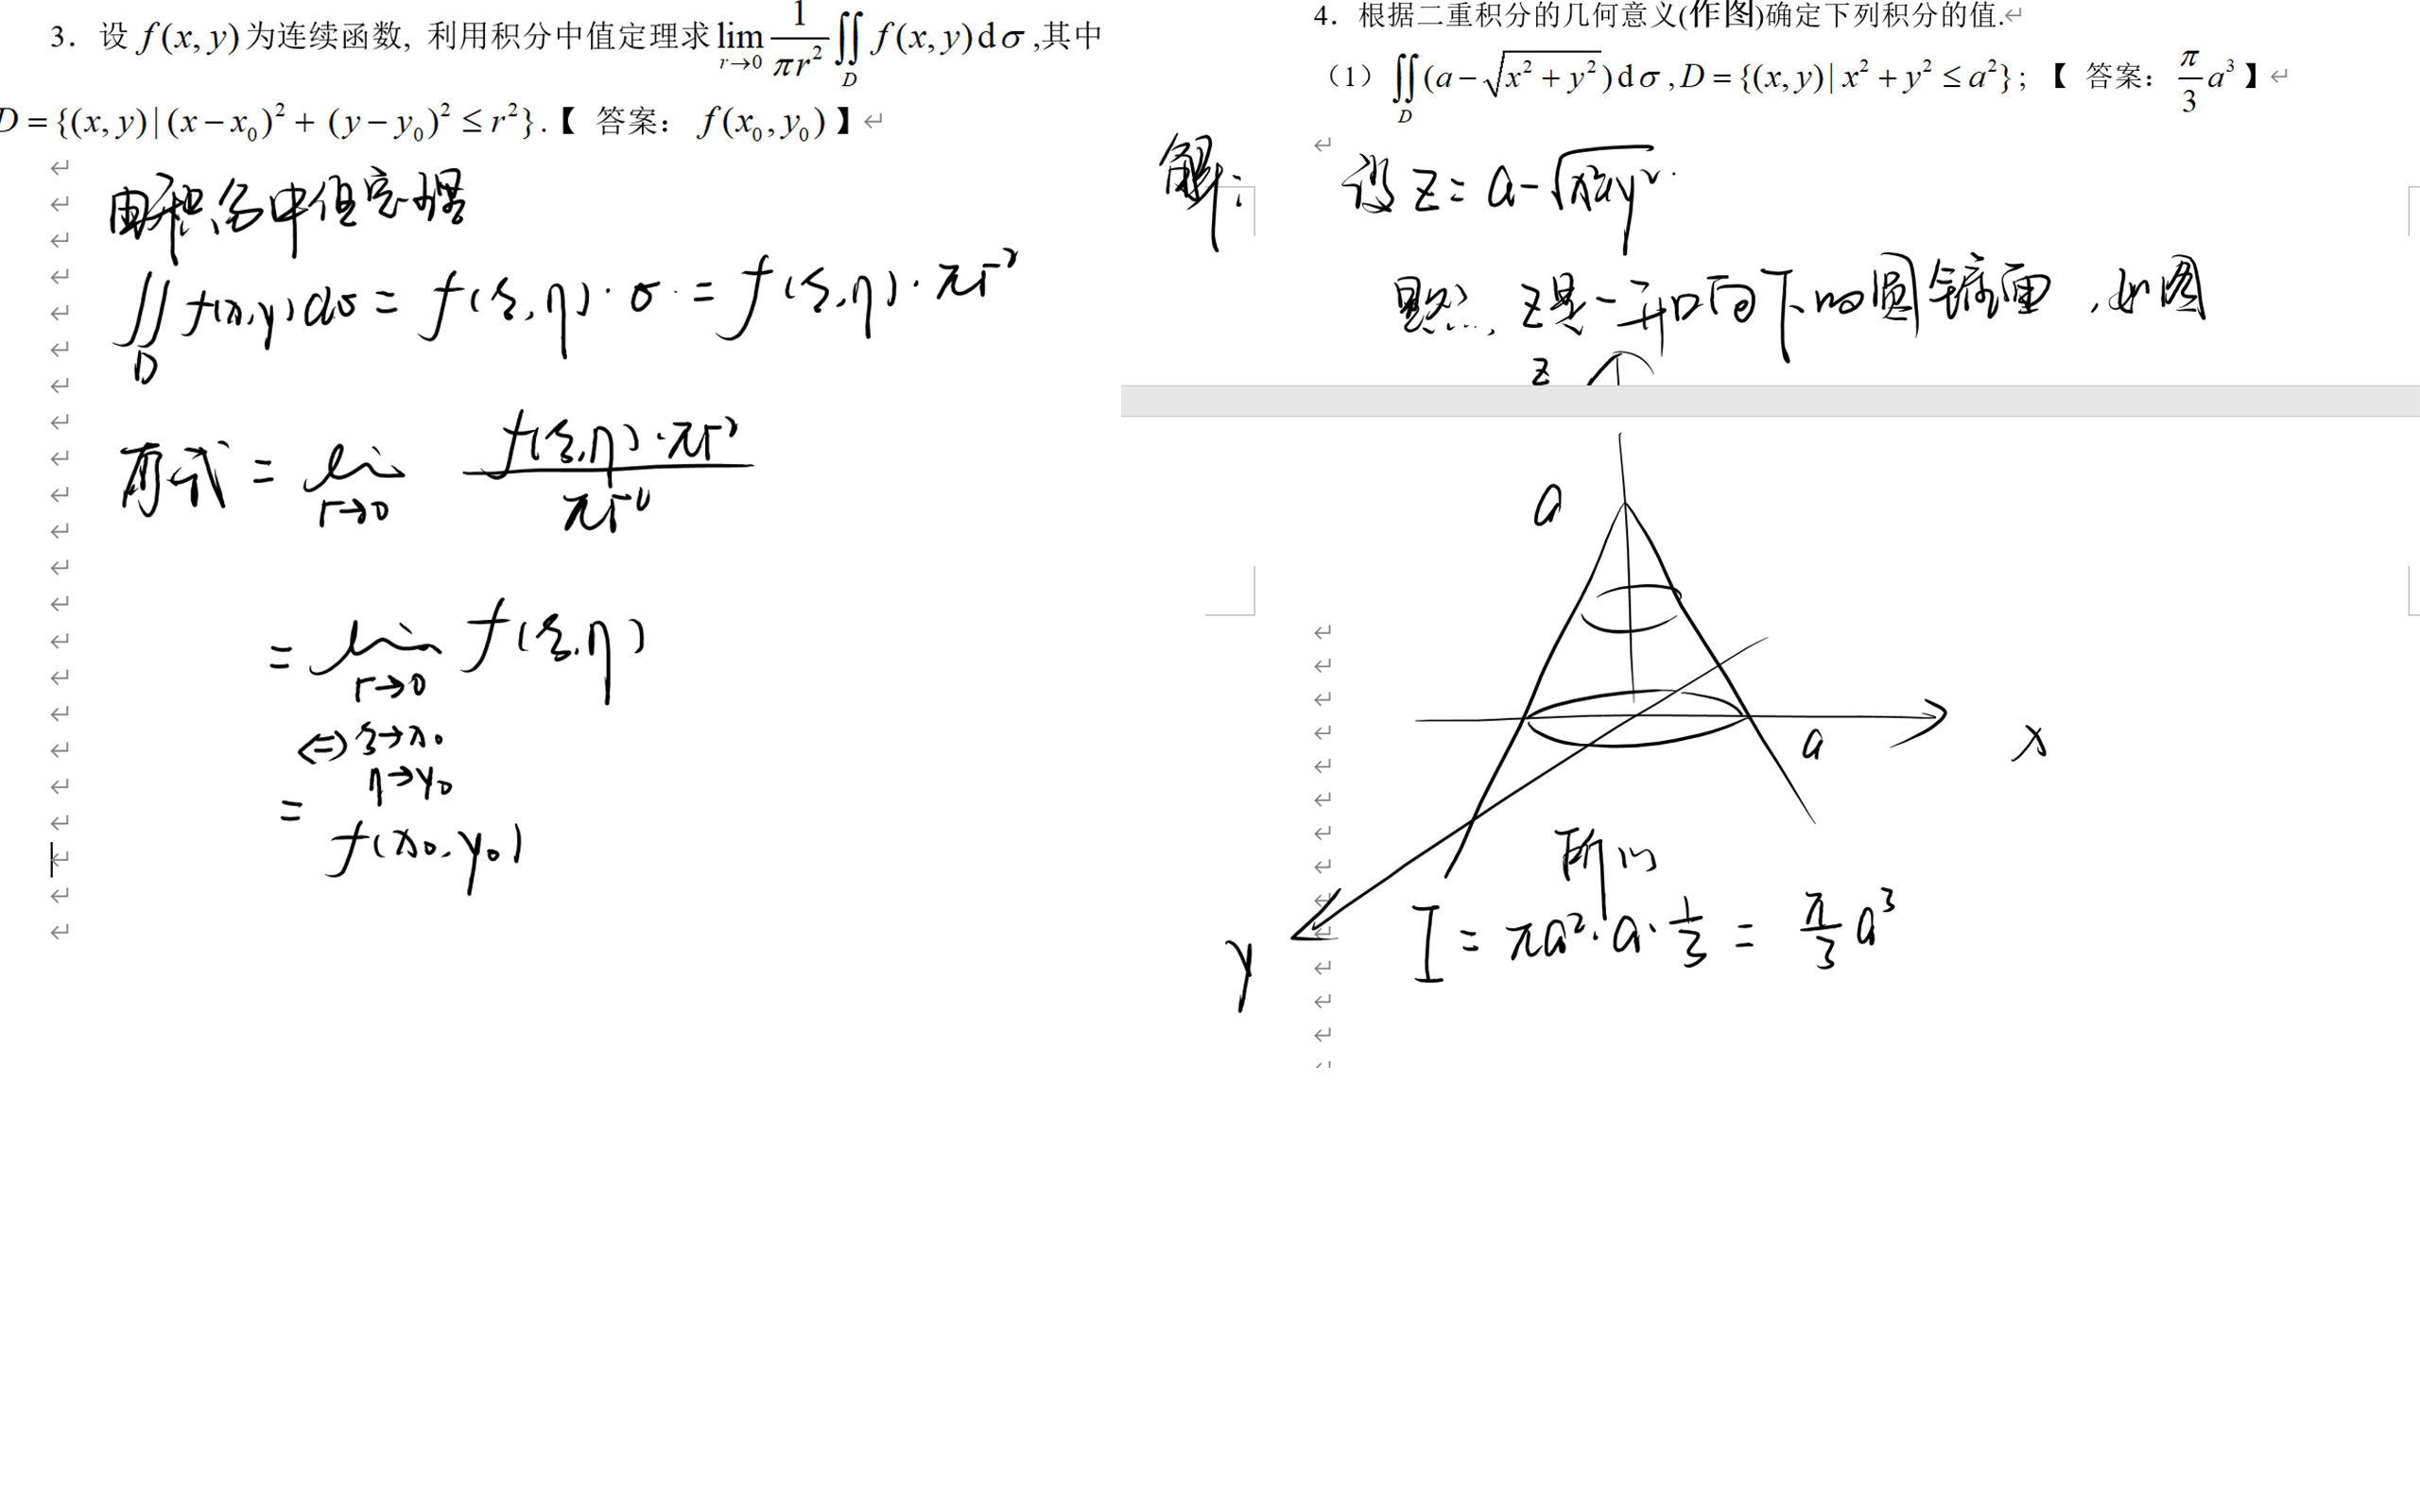 3. 设 f(x, y) 为连续函数, 利用积分中值定理求 lim_{r→0} \frac{1}{πr²} ∬_D f(x, y)dσ ,其中
D = {(x, y) | (x − x₀)² + (y − y₀)² ≤ r²}.【 答案: f(x₀, y₀) 】
由积分中值定理
∬_D f(x,y)dσ = f(ξ,η)·σ = f(ξ,η)·πr²
原式 = lim_{r→0} \frac{f(ξ,η)·πr²}{πr²}
= lim_{r→0} f(ξ,η)
⇔ ξ→x₀
η→y₀
=
f(x₀,y₀)
4. 根据二重积分的几何意义(作图)确定下列积分的值.
(1) ∬_D (a − √(x² + y²))dσ , D = {(x, y) | x² + y² ≤ a²}; 【 答案: \frac{π}{3}a³ 】
解:
设 z = a − √(x²+y²)
显然, z是一开口向下的圆锥面, 如图
z
a
a
x
y
所以
I = πa²·a·\frac{1}{3} = \frac{π}{3}a³